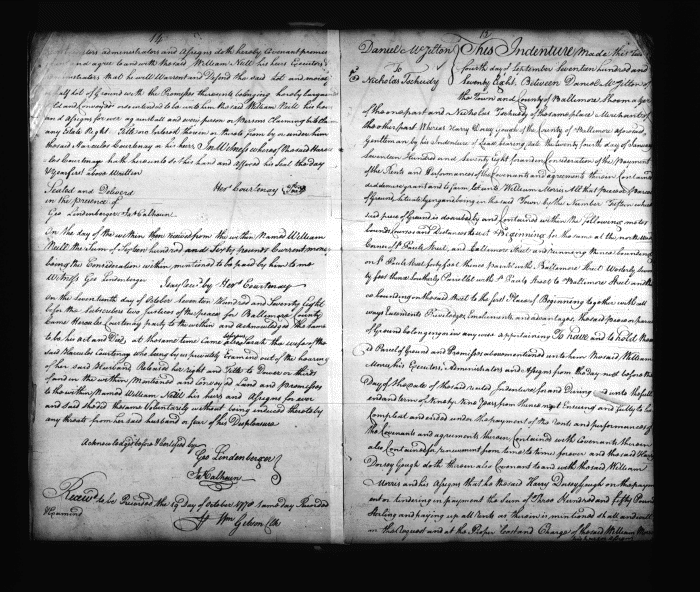 14
administrators and Assigns doth hereby Covenant promise
and agree to and with the said William Nell his heirs Executors
that he will Warrant and Defend the said Lot and
of Ground with the Premisses thereunto belonging hereby bargain
and Conveyed or intended to be unto him the said William Nell his heirs
and Assigns for ever against all and every person or Persons Claiming
any Estate Right Title Interest therein or thereto from by or under him
the said Hercules Courtenay or his heirs In Witness whereof the said
Courtenay hath hereunto set his hand and affixed his Seal the day
& Year first above Written
Sealed and Deliverd
in the presence of
Herc Courtenay Seal
Geo Lindenberger Ja Calhoun
On the day of the within Then received from the within Named William
Nell the Sum of Sixteen hundred and Sixty pounds Current money
being the Consideration within mentioned to be paid by him to me
Witness Geo Lindenberger Herc Courtenay
On the seventeenth day of October Seventeen Hundred and Seventy Eight
before the Subscribers two Justices of the peace for Baltimore County
Came Hercules Courtenay party to the within and acknowledged the same
to be his act and Deed, at the same time Came also Sarah the wife of the said
Hercules Courtenay who being by us privately Examined out of the hearing
of her said Husband Released her right and Title to Dower or thirds
of and in the within Mentiond and Conveyd Land and premisses
to the within Named William Nell his heirs and Assigns for ever
and said she did the same Voluntarily without being induced thereto by
any threats from her said husband or fear of his Displeasure
Acknowledged before & Certified by
Geo Lindenberger
Ja Calhoun
Receivd to be Recorded the 19 day of October 1778 Same day Recorded
& Examind
Wm Gibson Clk
Daniel McJilton
To
Nicholas Tschudy
This Indenture Made this
fourth day of September Seventeen hundred and
Seventy Eight, Between Daniel McJilton of
the Town and County of Baltimore Shoemaker
of the one part and Nicholas Tschudy of the same place Merchant of
the other part Whereas Harry Dorsey Gough of the County of Baltimore aforesaid
Gentleman by his Indenture of Lease bearing date the twenty fourth day of January
Seventeen Hundred and Seventy eight for and in Consideration of the payment
of the Rents and Performances of the Covenants and agreements therein Contained
did demise grant and to farm let unto William Morris All that piece or Parcel
of Ground being in the said Town by the Number Fifteen which
said piece of Ground is described by and Contained within the following metes
bounds Courses and distances to wit Beginning for the same at the
Corner of St Pauls Street and Baltimore Street and running thence bounding
on St Pauls Street forty feet thence parallel with Baltimore Street Westerly
feet thence Southerly Parallel with St Pauls Street to Baltimore Street and
bounding on the said Street to the first Place of Beginning together with all
ways Easements Priviledges Emoluments and advantages the said piece or parcel
of Ground belonging or in any wise appertaining To have and to hold the
Parcel of Ground and Premisses above mentioned unto him the said William
Morris his Executors Administrators and Assigns from the Day next before the
Day of the date of the said recited Indenture for and During and unto the full
end and term of Ninety Nine Years from thence next Ensuing and fully to be
Compleat and ended under the payment of the Rents and performances of
the Covenants and agreements therein Contained with Covenants therein
also Contained for renewment from time to time forever and the said Harry
Dorsey Gough doth therein also Covenant to and with the said William
Morris and his Assigns that he the said Harry Dorsey Gough on the payment
or tendering in payment the Sum of Three Hundred and fifty Pounds
Sterling and paying up all rents as therein is mentioned shall and will
on the Request and at the Proper Cost and Charge of the said William Morris